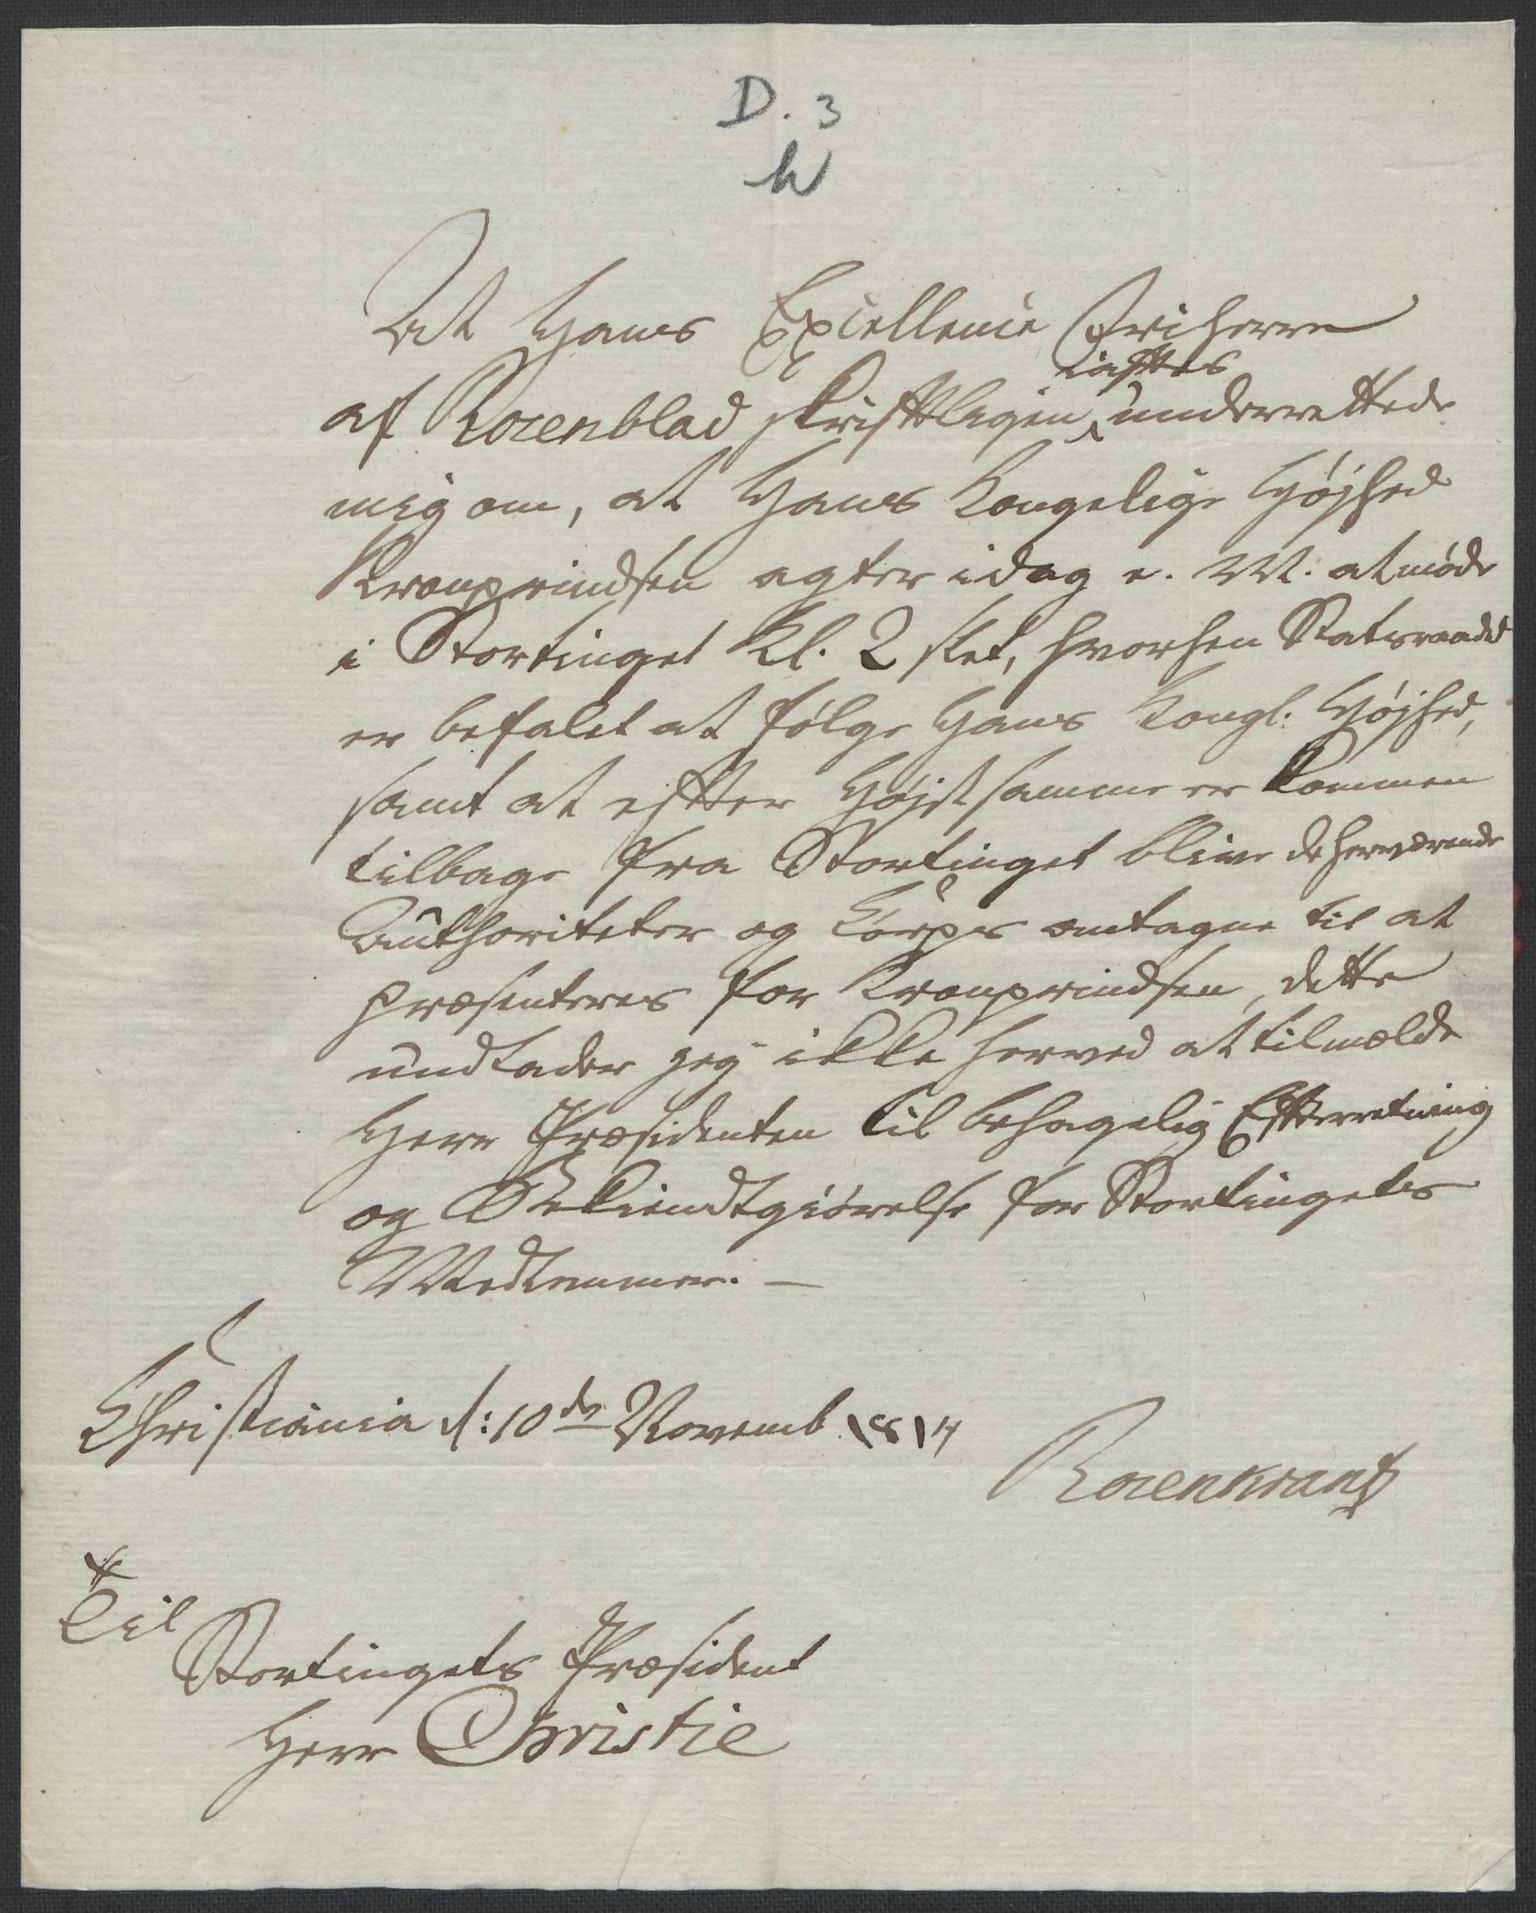 D. 3
h
At Hans Excellence Friherre
af Rosenblad skriftligen underrettede
mig om, at Hans Kongelige Højhed
Kronprindsen agter idag e. M. at møde
i Stortinget Kl. 2 slet, hvorhen Statsraadet
er befalet at følge Hans Kongl: Højhed,
samt at efter Højstsamme er kommen
tilbage fra Stortinget blive de herværende
Authoriteter og Corps antagne til at
præsenteres for Kronprindsen, dette
undlader jeg ikke herved at tilmælde
Herr Præsidenten til behagelig Efterretning
og Bekiendtgiørelse for Stortingets
Medlemmer. —
Christiania d: 10de Novemb 1814
Rosenkrantz
Til
Stortingets Præsident
Herr Christie